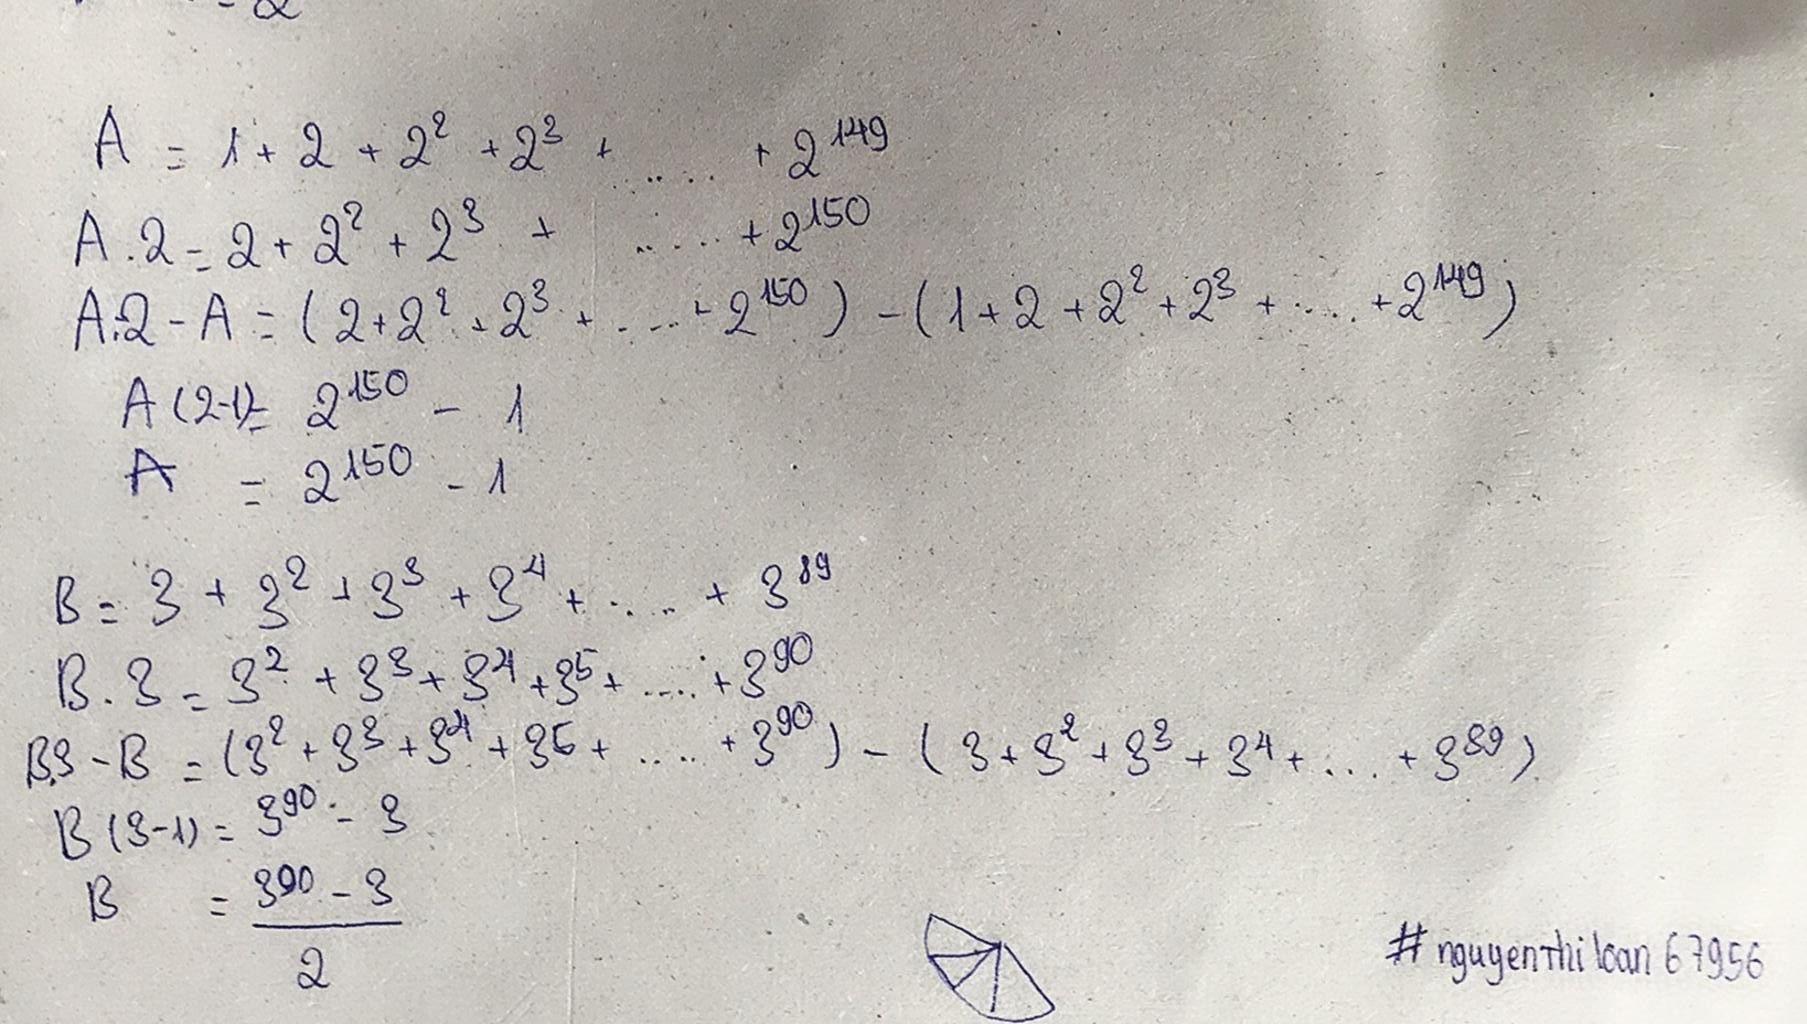 = 2
A = 1 + 2 + 2² + 2³ + ..... + 2¹⁴⁹
A . 2 = 2 + 2² + 2³ + ..... + 2¹⁵⁰
A.2 - A = ( 2 + 2² + 2³ + .... + 2¹⁵⁰ ) - ( 1 + 2 + 2² + 2³ + .... + 2¹⁴⁹ )
A (2-1) = 2¹⁵⁰ - 1
A = 2¹⁵⁰ - 1
B = 3 + 3² + 3³ + 3⁴ + .... + 3⁸⁹
B . 3 = 3² + 3³ + 3⁴ + 3⁵ + .... + 3⁹⁰
B.3 - B = ( 3² + 3³ + 3⁴ + 3⁵ + .... + 3⁹⁰ ) - ( 3 + 3² + 3³ + 3⁴ + ... + 3⁸⁹ )
B (3-1) = 3⁹⁰ - 3
B = 3⁹⁰ - 3
2
#nguyenthiloan67956